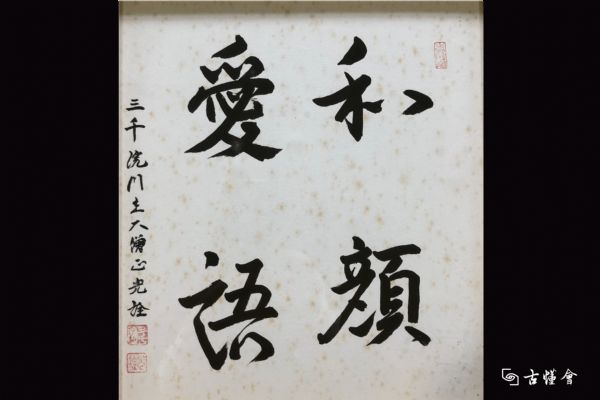 和顔
愛語
三千院門主大僧正光詮
古懂會